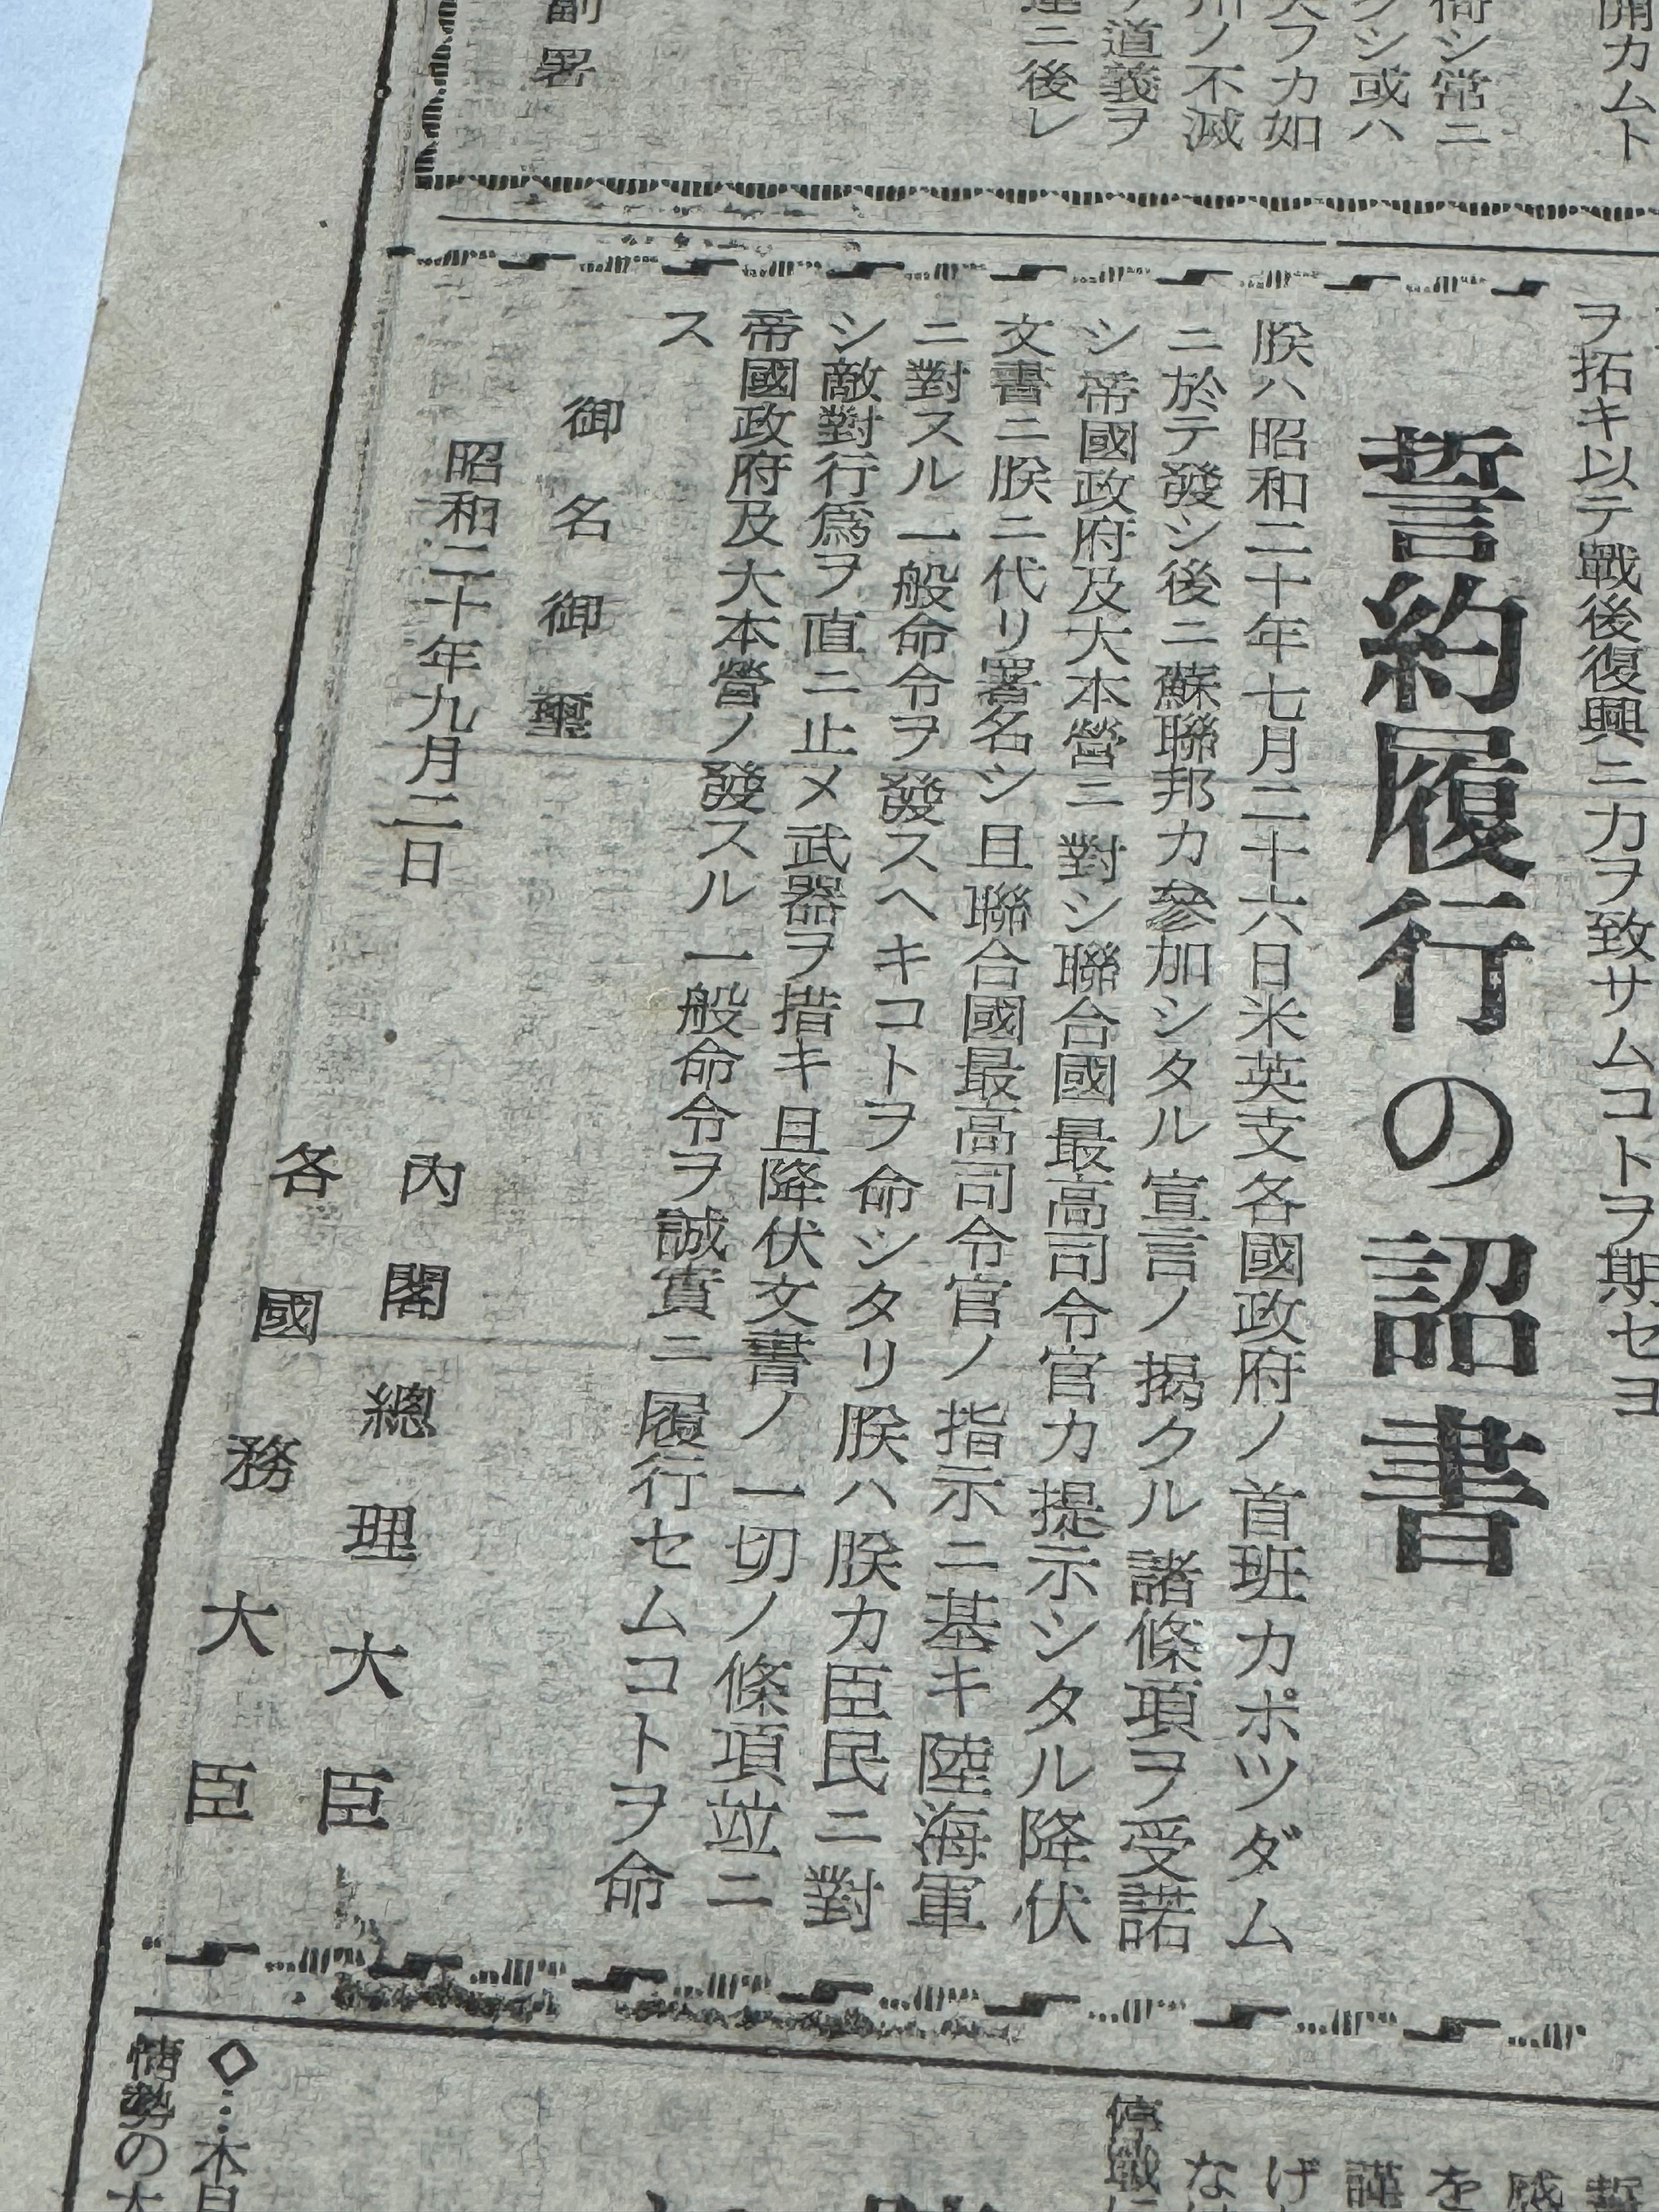 開カムト
倚シ常ニ
クシ或ハ
失フカ如
州ノ不滅
道義ヲ
運ニ後レ
副署
ヲ拓キ以テ戰後復興ニ力ヲ致サムコトヲ期セヨ
誓約履行の詔書
朕ハ昭和二十年七月二十六日米英支各國政府ノ首班カポツダム
ニ於テ發シ後ニ蘇聯邦カ參加シタル宣言ノ掲クル諸條項ヲ受諾
シ帝國政府及大本營ニ對シ聯合國最高司令官カ提示シタル降伏
文書ニ朕ニ代リ署名シ且聯合國最高司令官ノ指示ニ基キ陸海軍
ニ對スル一般命令ヲ發スヘキコトヲ命シタリ朕ハ朕カ臣民ニ對
シ敵對行爲ヲ直ニ止メ武器ヲ措キ且降伏文書ノ一切ノ條項竝ニ
帝國政府及大本營ノ發スル一般命令ヲ誠實ニ履行セムコトヲ命
ス
御名御璽
昭和二十年九月二日
內閣總理大臣
各國務大臣
謹
を
げ
な
停戰に
◇…本日
情勢の大